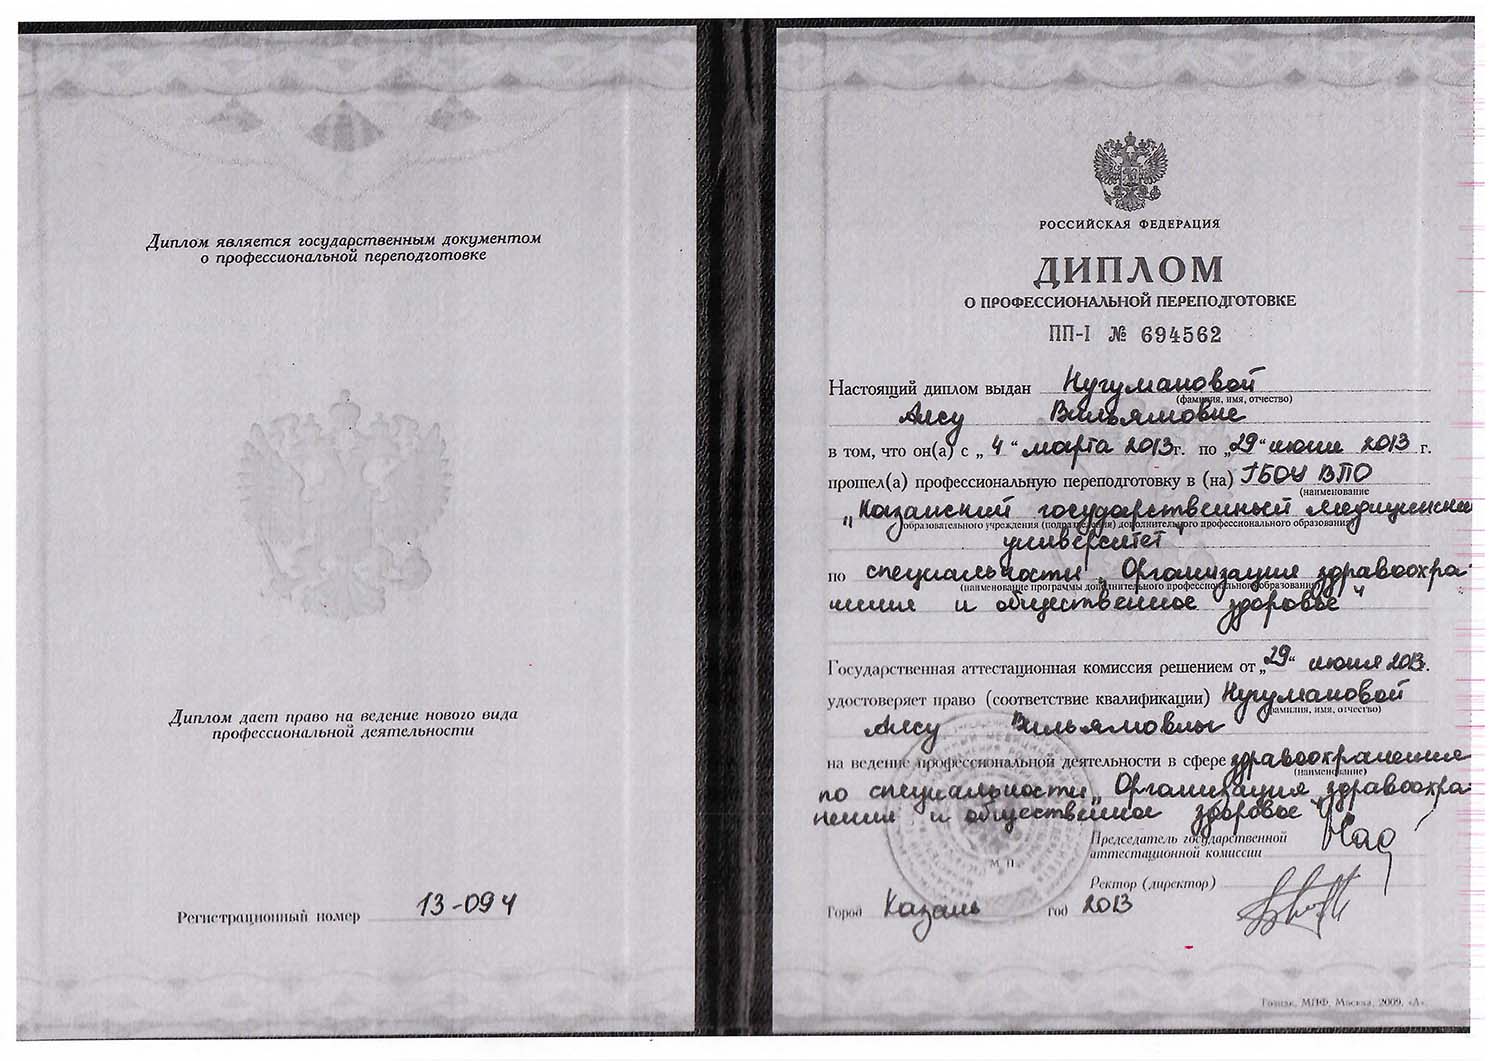 Диплом является государственным документом
о профессиональной переподготовке
Диплом дает право на ведение нового вида
профессиональной деятельности
Регистрационный номер 13-094
РОССИЙСКАЯ ФЕДЕРАЦИЯ
ДИПЛОМ
О ПРОФЕССИОНАЛЬНОЙ ПЕРЕПОДГОТОВКЕ
ПП-I № 694562
Настоящий диплом выдан Нугумановой
(фамилия, имя, отчество)
Алсу Вильямовне
в том, что он(а) с „4“ марта 2013г. по „29“ июня 2013 г.
прошел(а) профессиональную переподготовку в (на) ГБОУ ВПО
(наименование
„Казанский государственный медицинский
образовательного учреждения (подразделения) дополнительного профессионального образования)
университет“
по специальности „Организация здравоохра-
(наименование программы дополнительного профессионального образования)
нения и общественное здоровье“
Государственная аттестационная комиссия решением от „29“ июня 2013.
удостоверяет право (соответствие квалификации) Нугумановой
(фамилия, имя, отчество)
Алсу Вильямовны
на ведение профессиональной деятельности в сфере здравоохранения
(наименование)
по специальности „Организация здравоохра-
нения и общественное здоровье“
Председатель государственной
аттестационной комиссии
М. П.
Ректор (директор)
Город Казань год 2013
Гознак, МПФ, Москва, 2009, «А».